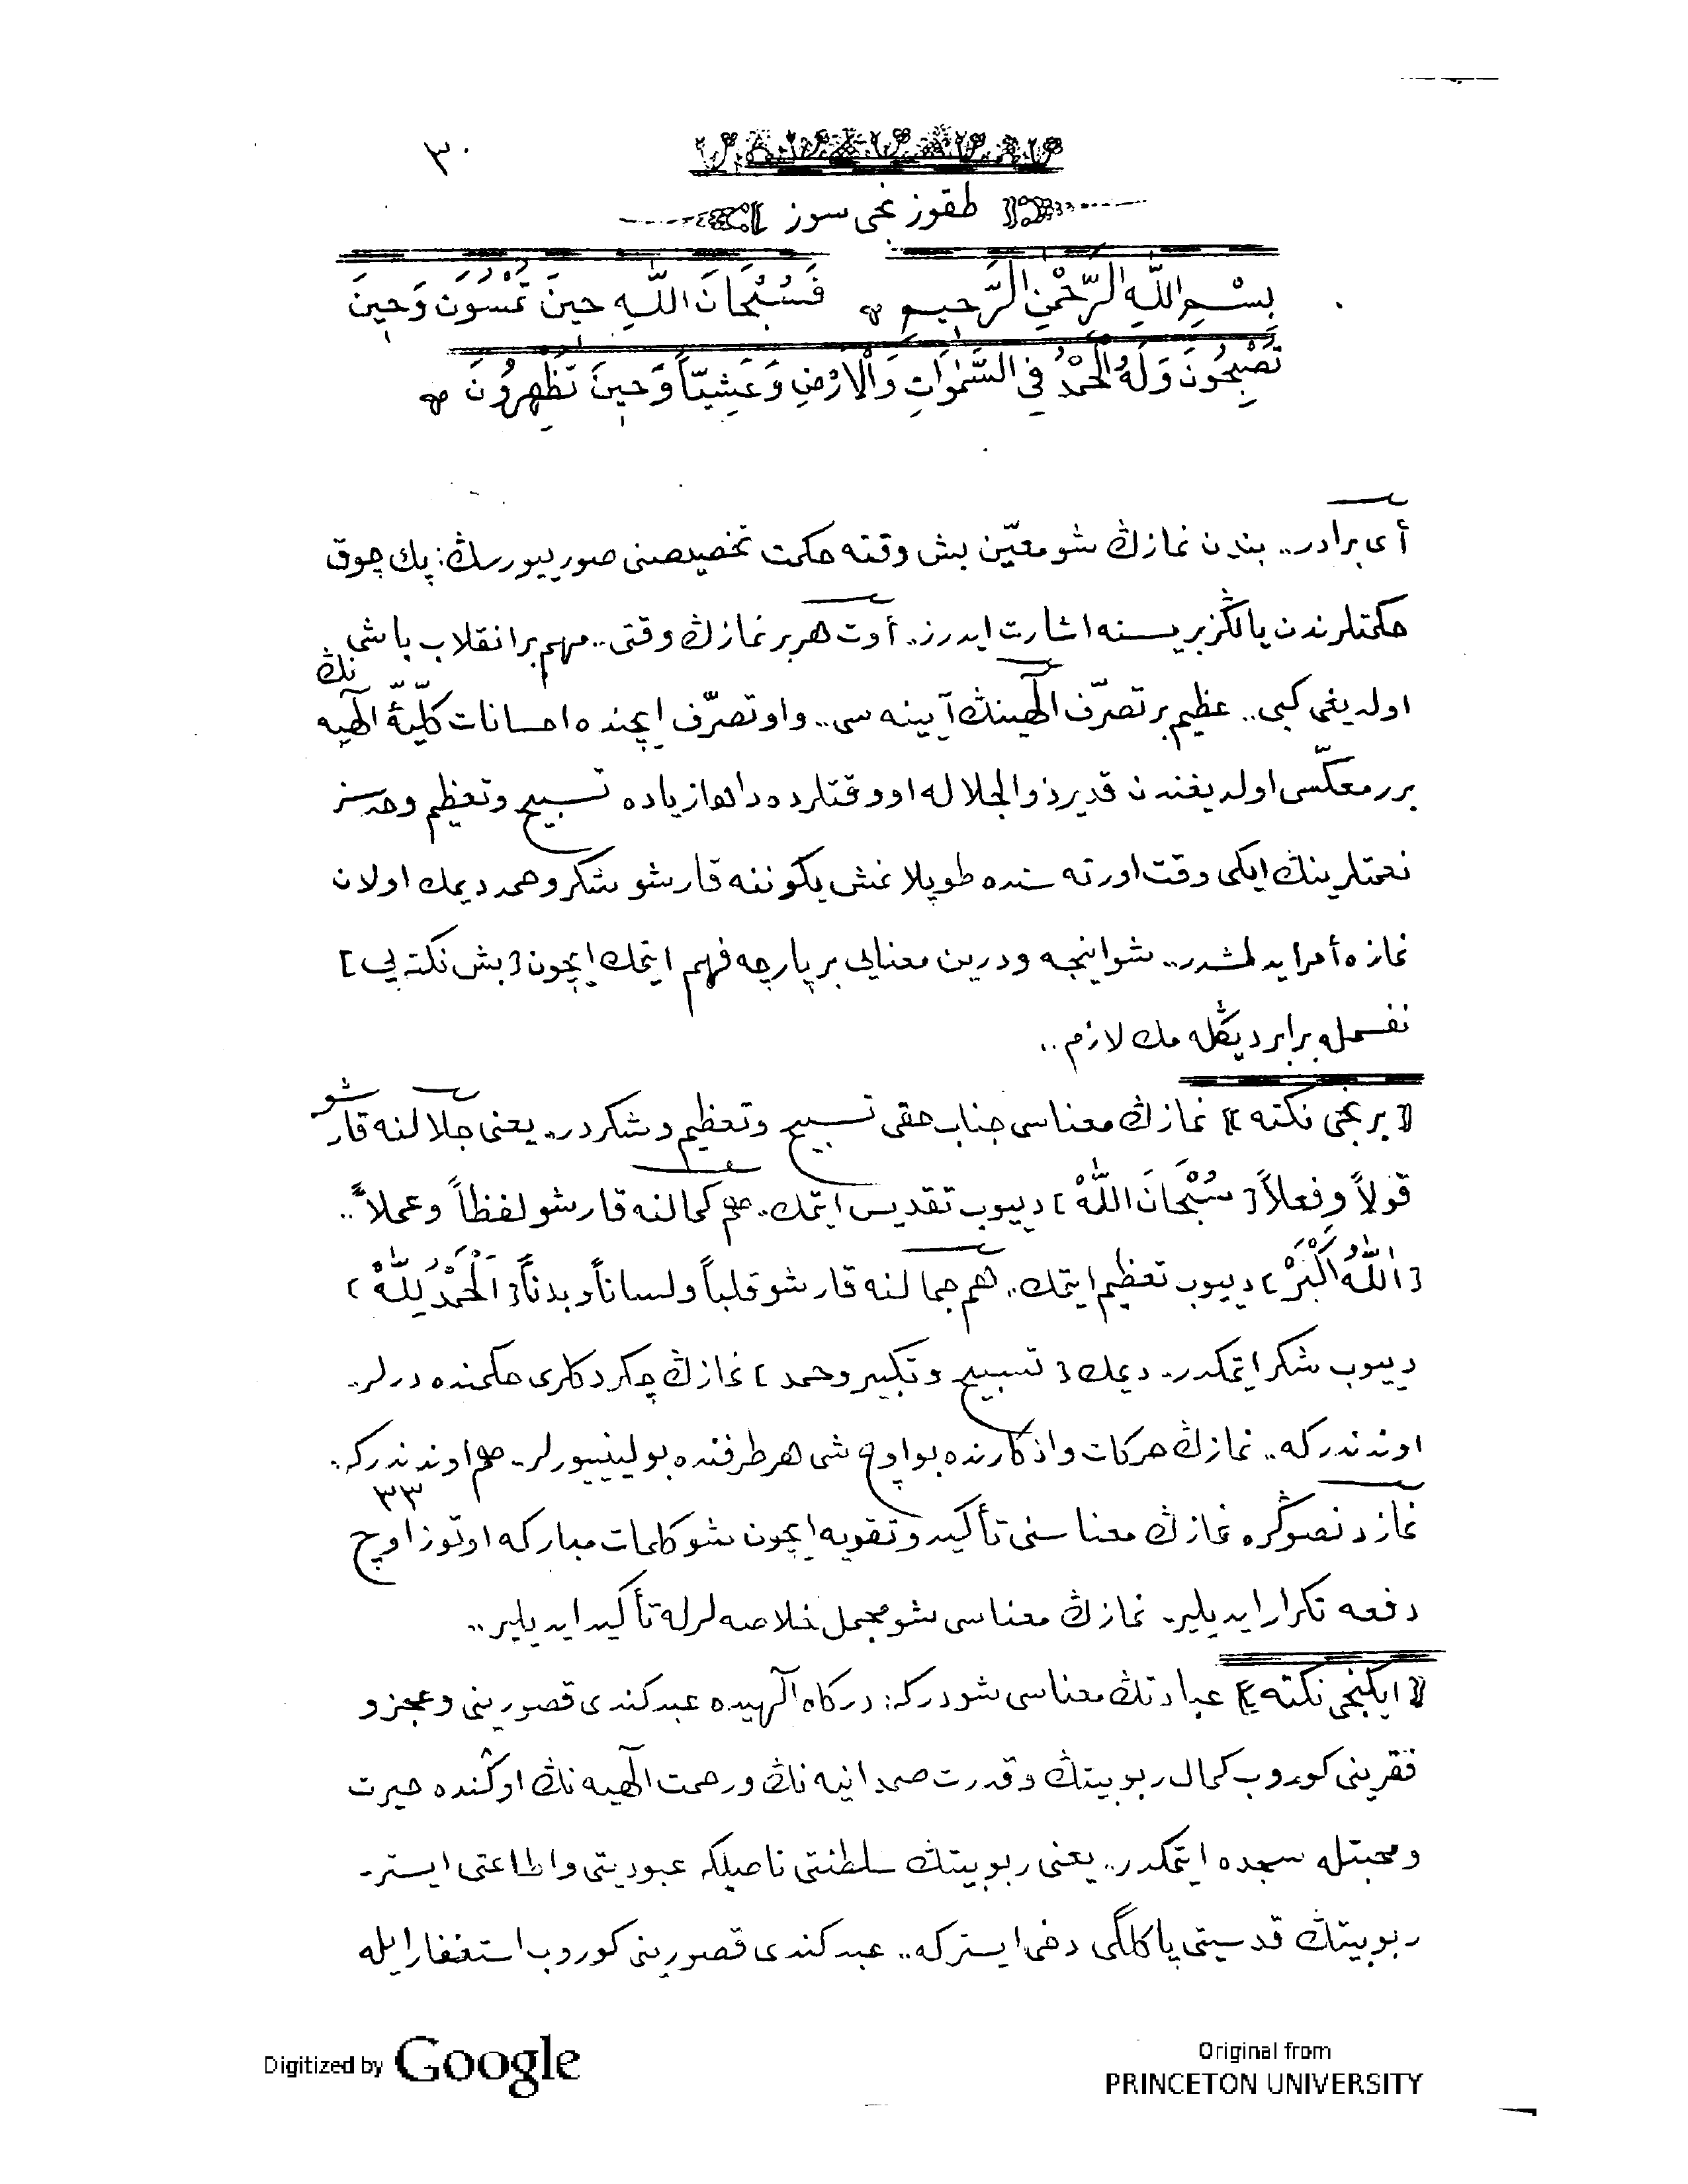 ٣٠
طقوزنجی سوز
بِسْمِ اللّٰهِ الرَّحْمٰنِ الرَّحِيمِ فَسُبْحَانَ اللّٰهِ حِينَ تُمْسُونَ وَحِينَ
تُصْبِحُونَ وَلَهُ الْحَمْدُ فِى السَّمٰوَاتِ وَالْاَرْضِ وَعَشِيًّا وَحِينَ تُظْهِرُونَ
أی برادر.. بندن نمازڭ شو معیّن بش وقته حكمت تخصیصنی صورییورسڭ: پك چوق
حكمتلرندن یالڭز بریسنه اشارت ایدرز.. أوت هربر نمازڭ وقتی.. مهم بر انقلاب باشی
اولدیغی كبی.. عظیم بر تصرّف الٓهینڭ آیینه سی.. واو تصرّف ایچنده احسانات كلّیّۀ الٓهیه نڭ
برر معكسی اولدیغندن قدیر ذوالجلاله او وقتلرده داها زیاده تسبیح وتعظیم وحدسز
نعمتلرینڭ ایكی وقت اورته سنده طوپلانمش یكوننه قارشو شكر وحمد دیمك اولان
نمازه أمر ایدلمشدر.. شو اینجه ودرین معنایی بر پارچه فهم ایتمك ایچون [بش نكته یی]
نفسمله برابر دیڭله مك لازم..
﴿ برنجی نكته ﴾ نمازڭ معناسی جناب حقی تسبیح وتعظیم وشكردر.. یعنی جلالنه قارشو
قولاً وفعلاً [سُبْحَانَ اللّٰهْ] دییوب تقدیس ایتمك.. هم كمالنه قارشو لفظاً وعملاً..
[اَللّٰهُ اَكْبَرْ] دییوب تعظیم ایتمك.. هم جمالنه قارشو قلباً ولساناً وبدناً [اَلْحَمْدُ لِلّٰهْ]
دییوب شكر ایتمكدر.. دیمك [تسبیح وتكبیر وحمد] نمازڭ چكردكلری حكمنده درلر..
اوندندركه.. نمازڭ حركات واذكارنده بو اوچ شی هر طرفنده بولینییورلر.. هم اوندندركه..
نمازدنصوڭره نمازڭ معناسنی تأكید وتقویه ایچون شو كلمات مباركه اوتوز اوچ ٣٣
دفعه تكرار ایدیلیر.. نمازڭ معناسی شو مجمل خلاصه لرله تأكید ایدیلیر..
﴿ ایكنجی نكته ﴾ عبادتڭ معناسی شودركه: دركاه الٓهیده عبد كندی قصورینی وعجز و
فقرینی كوروب كمال ربوبیتڭ وقدرت صمدانیه نڭ ورحمت الٓهیه نڭ اوڭنده حیرت
ومحبتله سجده ایتمكدر.. یعنی ربوبیتڭ سلطنتی ناصلكه عبودیتی واطاعتی ایستر..
ربوبیتڭ قدسیتی پاكلگی دخی ایستركه.. عبد كندی قصورینی كوروب استغفار ایله
Digitized by Google
Original from
PRINCETON UNIVERSITY